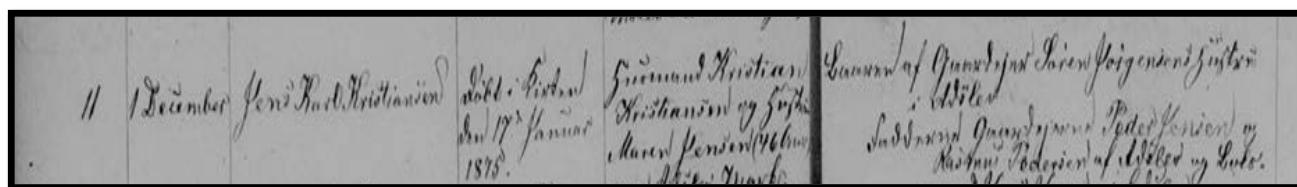 11
1 December
Jens Karl Kristiansen
Döbt i Kirken
den 17de Januar
1875.
Huusmand Kristian
Kristiansen og Hustru
Maren Jensen (46 Aar)
Mark
Baaren af Gaardejer Sören Jörgensens Hustru
i Adslev
Fadderne Gaardejerne Peder Jensen og
Pedersen af Adslev og